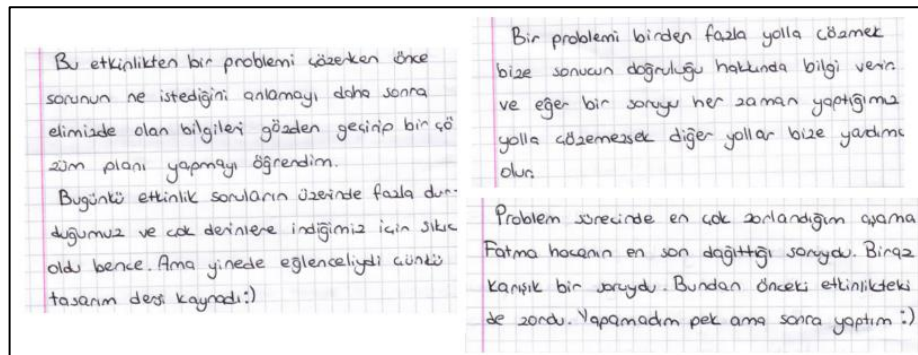 Bu etkinlikten bir problemi çözerken önce
sorunun ne istediğini anlamayı daha sonra
elimizde olan bilgileri gözden geçirip bir çö
züm planı yapmayı öğrendim.
Bugünkü etkinlik soruların üzerinde fazla dur-
duğumuz ve çok derinlere indiğimiz için sıkıc
oldu bence. Ama yinede eğlenceliydi çünkü
tasarım desi kaynadı:)
Bir problemi birden fazla yolla çözmek
bize sonucun doğruluğu hakkında bilgi verir.
ve eğer bir soruyu her zaman yaptığımız
yolla çözemezsek diğer yollar bize yardımc
olur.
Problem sürecinde en çok zorlandığım aşama
Fatma hocanın en son dağıttığı soruydu. Biraz
karışık bir soruydu. Bundan önceki etkinlikteki
de zordu. Yapamadım pek ama sonra yaptım :)